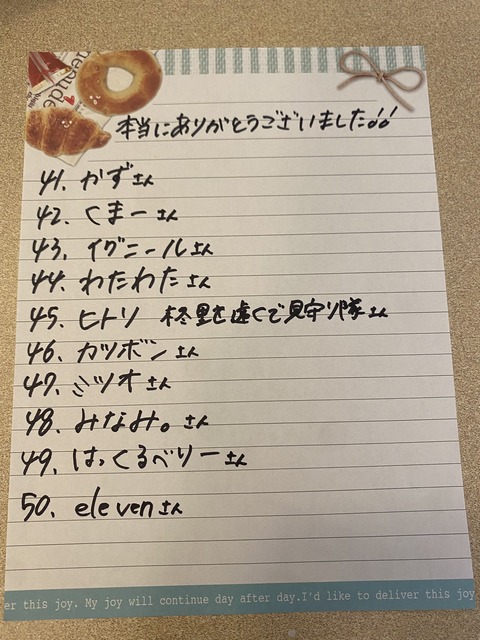 本当にありがとうございました!!
41. かずさん
42. くまーさん
43. イグニールさん
44. わたわたさん
45. ヒトリ 柊里を遠くで見守り隊さん
46. カツボンさん
47. ミツオさん
48. みなみ。さん
49. はっくるべりーさん
50. elevenさん
er this joy. My joy will continue day after day.I'd like to deliver this joy